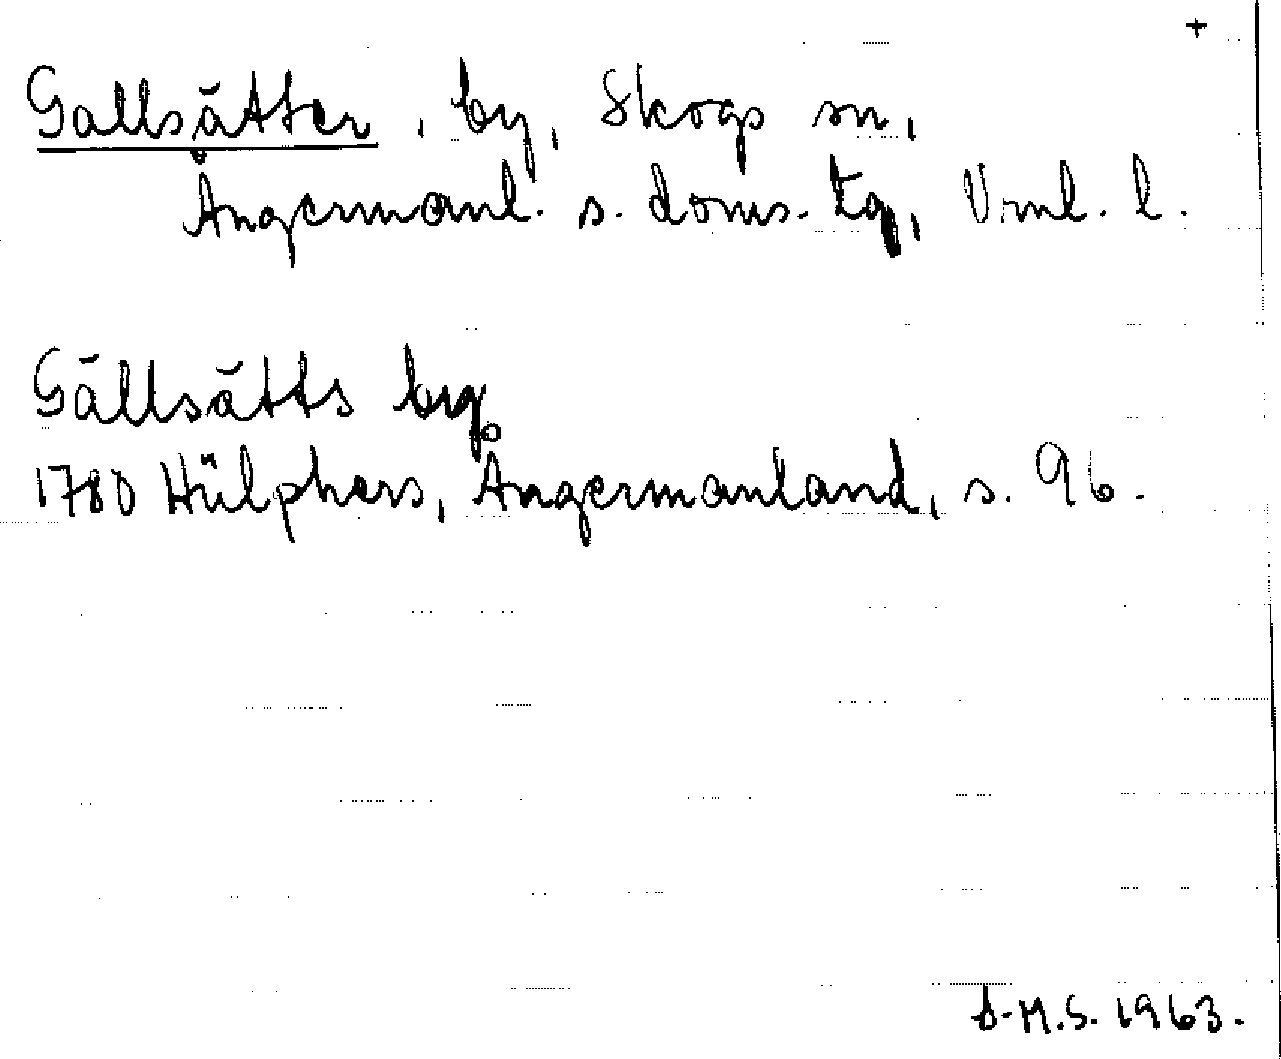 +
Gallsätter, by, Skogs sn,
Ångermanl. s. doms. tg, Vrnl. l.
Gällsätts by
1780 Hülphers, Ångermanland, s. 96.
A-M.S. 1963.